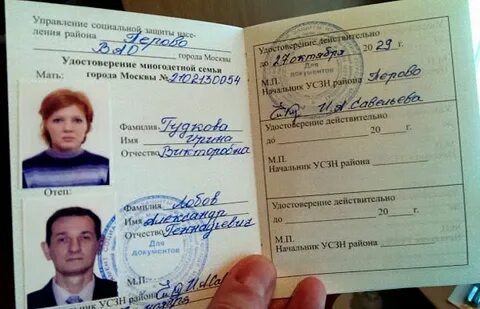 Управление социальной защиты насе-
ления района Перово
ВАО города Москвы
Удостоверение многодетной семьи
Мать: города Москвы № 2102130054
Фамилия Гудкова
Имя Ирина
Отчество Викторовна
Отец:
Фамилия Лобов
Имя Александр
Отчество Геннадьевич
Для
документов
М.П.
Начальник УСЗН района
Удостоверение действительно
до 27 октября 2029 г.
Для
документов
М.П. Перово
Начальник УСЗН района
И.А Савельева
Удостоверение действительно
до 20 г.
М.П.
Начальник УСЗН района
Удостоверение действительно
до 20 г.
М.П.
Начальник УСЗН района